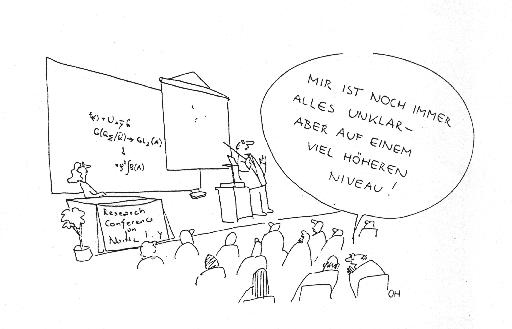 MIR IST NOCH IMMER
ALLES UNKLAR-
ABER AUF EINEM
VIEL HÖHEREN
NIVEAU!
Research
Conference
on
OH